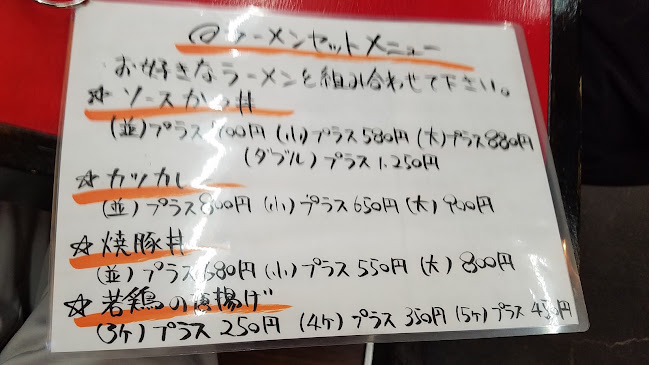 ◎ラーメンセットメニュー
お好きなラーメンと組み合わせて下さい。
☆ソースかつ丼
(並)プラス700円(小)プラス580円(大)プラス880円
(ダブル)プラス1.250円
☆カツカレー
(並)プラス800円(小)プラス650円(大)900円
☆焼豚丼
(並)プラス680円(小)プラス550円(大)800円
☆若鶏の唐揚げ
(3ヶ)プラス250円(4ヶ)プラス350円(5ヶ)プラス450円